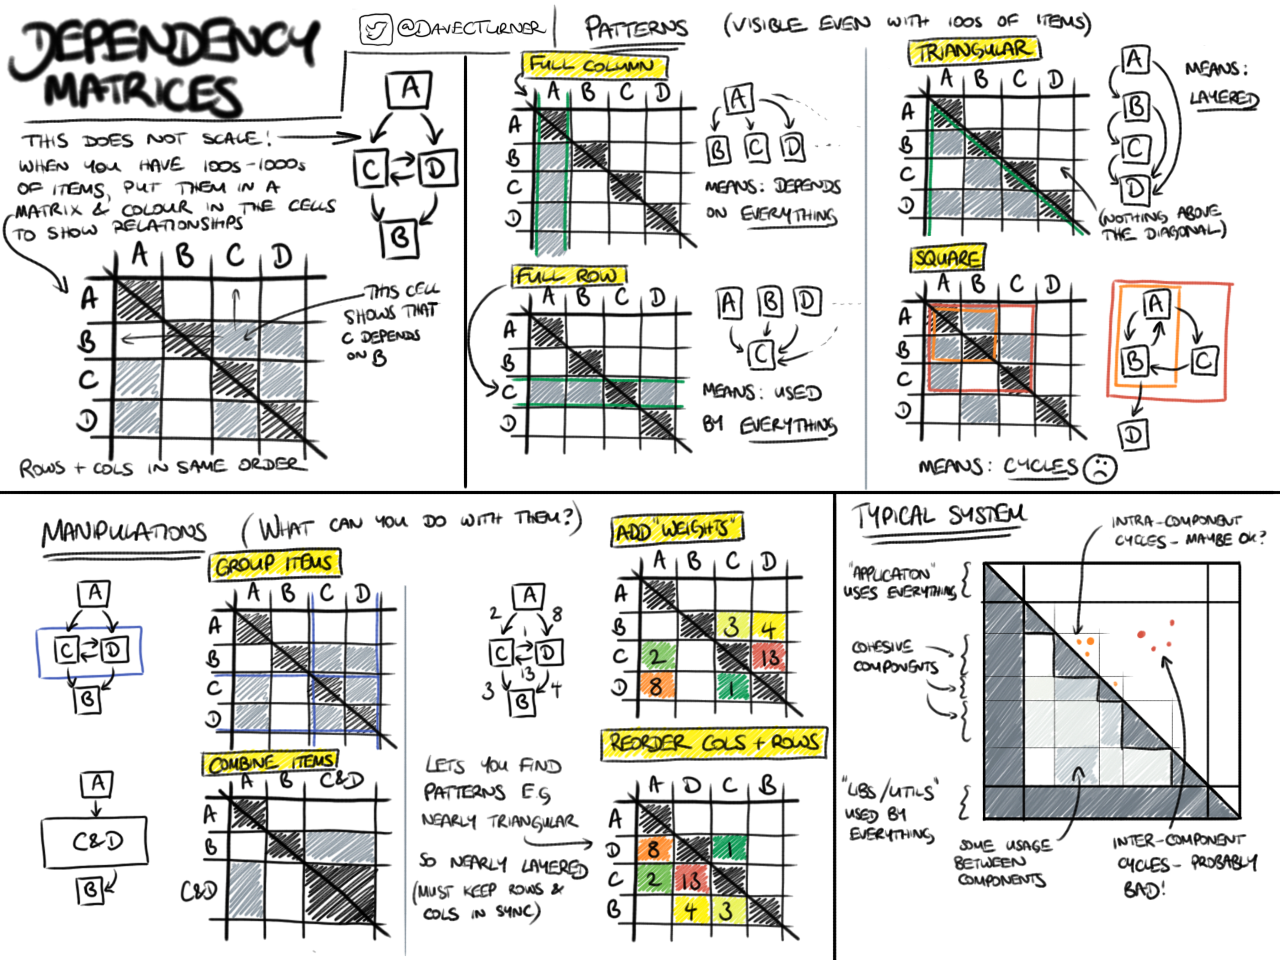 DEPENDENCY
MATRICES
@DAVECTURNER
THIS DOES NOT SCALE!
WHEN YOU HAVE 100S-1000S
OF ITEMS, PUT THEM IN A
MATRIX & COLOUR IN THE CELLS
TO SHOW RELATIONSHIPS
A
C D
B
A B C D
A
B
C
D
THIS CELL
SHOWS THAT
C DEPENDS
ON B
ROWS + COLS IN SAME ORDER
PATTERNS (VISIBLE EVEN WITH 100S OF ITEMS)
FULL COLUMN
A B C D
A
B
C
D
A
B C D
MEANS: DEPENDS
ON EVERYTHING
FULL ROW
A B C D
A
B
C
D
A B D
C
MEANS: USED
BY EVERYTHING
TRIANGULAR
A B C D
A
B
C
D
A
B
C
D
MEANS:
LAYERED
(NOTHING ABOVE
THE DIAGONAL)
SQUARE
A B C D
A
B
C
D
A
B C
D
MEANS: CYCLES
MANIPULATIONS (WHAT CAN YOU DO WITH THEM?)
GROUP ITEMS
A
C D
B
A B C D
A
B
C
D
COMBINE ITEMS
A
C&D
B
A B C&D
A
B
C&D
ADD "WEIGHTS"
A
2 8
1
C D
13
3 4
B
A B C D
A
B 3 4
C 2 13
D 8 1
REORDER COLS + ROWS
LETS YOU FIND
PATTERNS E.G
NEARLY TRIANGULAR
SO NEARLY LAYERED
(MUST KEEP ROWS &
COLS IN SYNC)
A D C B
A
D 8 1
C 2 13
B 4 3
TYPICAL SYSTEM
INTRA-COMPONENT
CYCLES - MAYBE OK?
"APPLICATION"
USES EVERYTHING
COHESIVE
COMPONENTS
"LIBS/UTILS"
USED BY
EVERYTHING
SOME USAGE
BETWEEN
COMPONENTS
INTER-COMPONENT
CYCLES - PROBABLY
BAD!